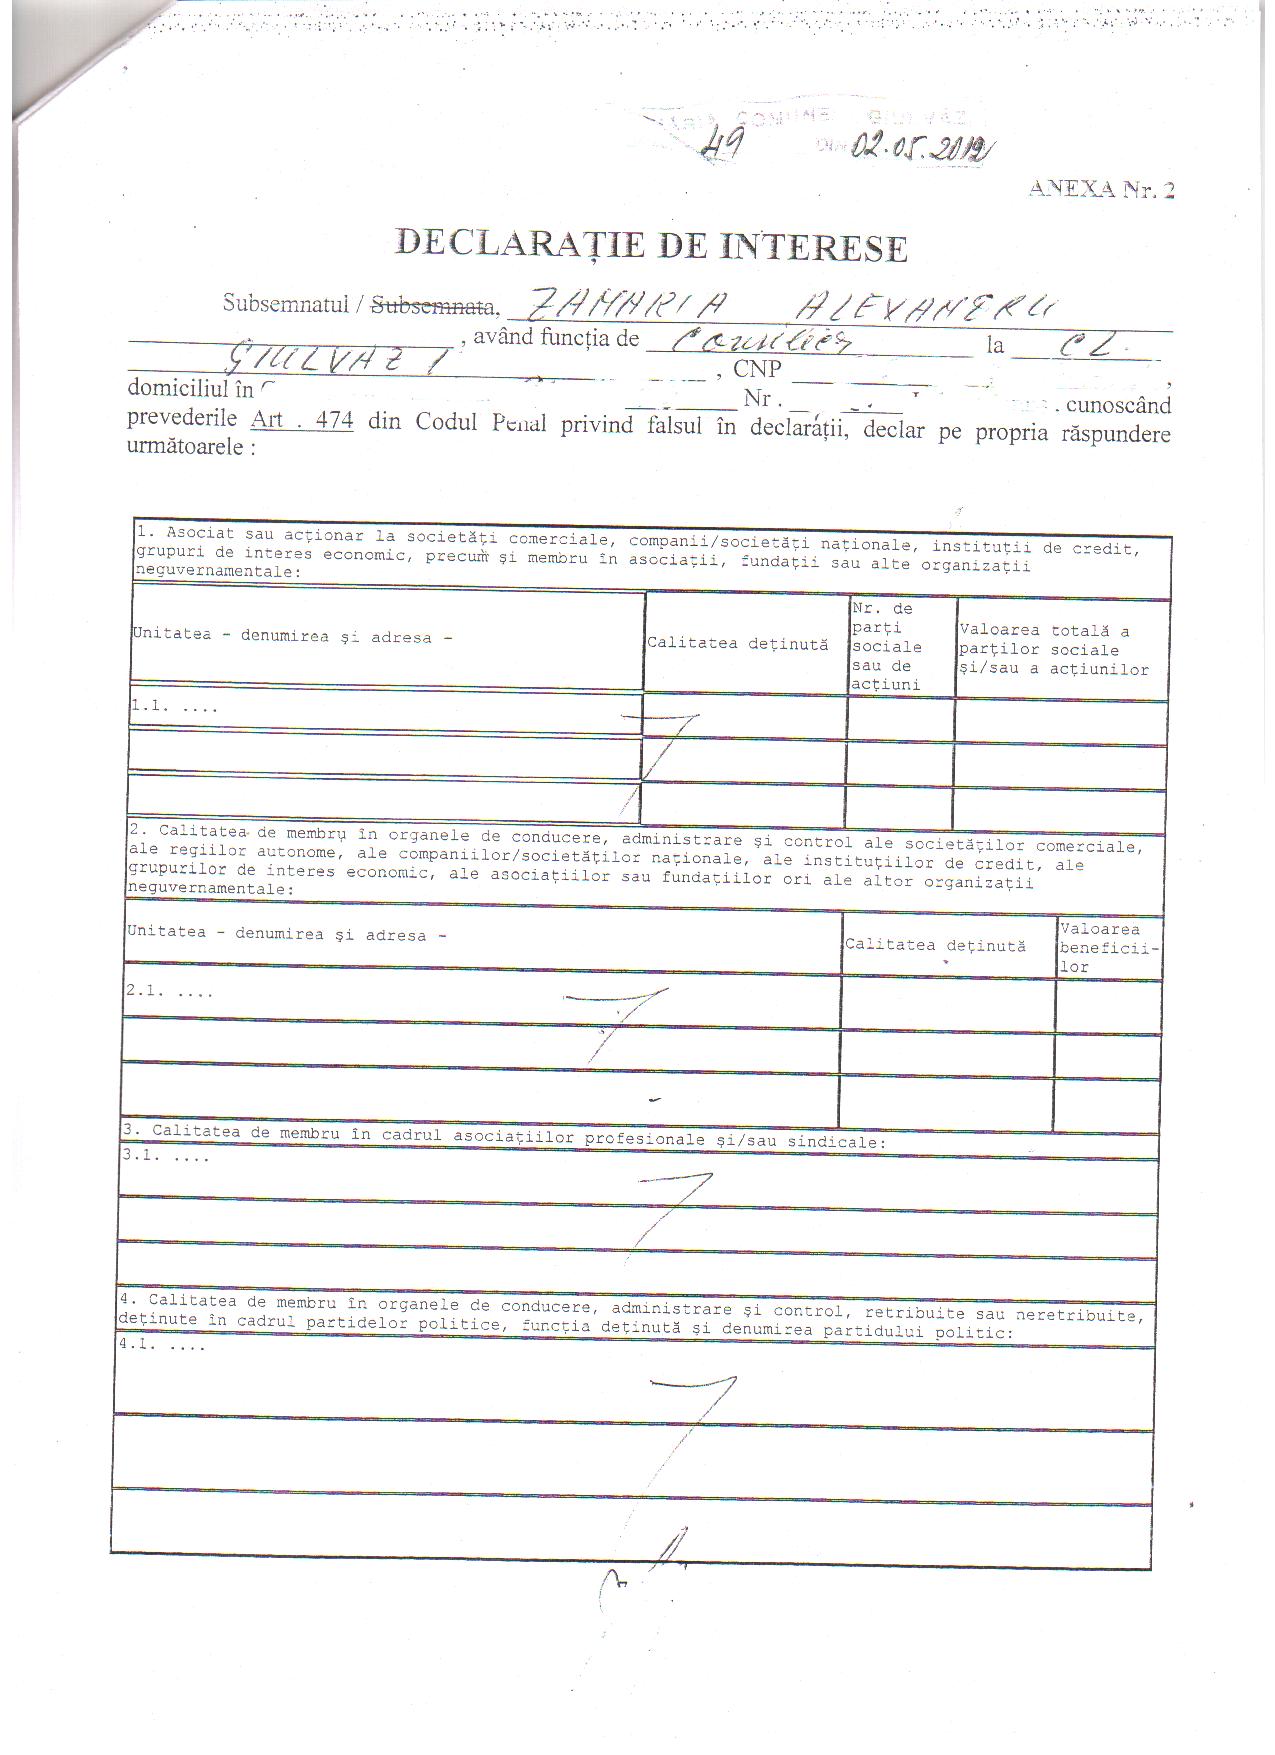 49 02.05.2012
ANEXA Nr. 2
DECLARAȚIE DE INTERESE
Subsemnatul / Subsemnata, ZAMARIA ALEXANDRU
, având funcția de Consilier la CL.
GIULVAZ , CNP ,
domiciliul în Nr . . cunoscând
prevederile Art . 474 din Codul Penal privind falsul în declarații, declar pe propria răspundere
următoarele :
1. Asociat sau acționar la societăți comerciale, companii/societăți naționale, instituții de credit,
grupuri de interes economic, precum și membru în asociații, fundații sau alte organizații
neguvernamentale:
Unitatea - denumirea și adresa -
Calitatea deținută
Nr. de
parți
sociale
sau de
acțiuni
Valoarea totală a
parților sociale
și/sau a acțiunilor
1.1. ....
2. Calitatea de membru în organele de conducere, administrare și control ale societăților comerciale,
ale regiilor autonome, ale companiilor/societăților naționale, ale instituțiilor de credit, ale
grupurilor de interes economic, ale asociațiilor sau fundațiilor ori ale altor organizații
neguvernamentale:
Unitatea - denumirea și adresa -
Calitatea deținută
Valoarea
beneficii-
lor
2.1. ....
3. Calitatea de membru în cadrul asociațiilor profesionale și/sau sindicale:
3.1. ....
4. Calitatea de membru în organele de conducere, administrare și control, retribuite sau neretribuite,
deținute in cadrul partidelor politice, funcția deținută și denumirea partidului politic:
4.1. ....